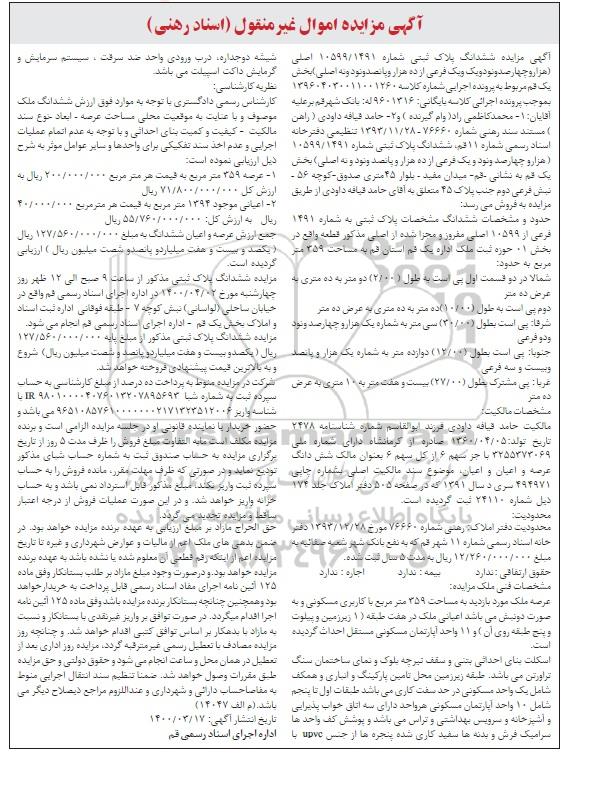 آگهی مزایده اموال غیرمنقول (اسناد رهنی)
آگهی مزایده ششدانگ پلاک ثبتی شماره ۱۰۵۹۹/۱۴۹۱ اصلی
(هزار و چهارصد و نود و یک و یک فرعی از ده هزار و پانصد و نود و نه اصلی) بخش
یک قم مربوط به پرونده اجرایی شماره کلاسه ۱۳۹۶۰۴۰۳۰۰۱۱۰۰۱۲۶۰
بموجب پرونده اجرائی کلاسه بایگانی: ۹۶۰۱۳۱۶ له: بانک شهر قم بر علیه
آقایان: ۱- محمدکاظمی راد( وام گیرنده ) و۲- حامد قیافه داودی ( راهن
) مستند سند رهنی شماره ۷۶۶۶۰ - ۱۳۹۳/۱۱/۲۸ تنظیمی دفترخانه
اسناد رسمی شماره ۱۱ قم، ششدانگ پلاک ثبتی شماره ۱۰۵۹۹/۱۴۹۱
( هزار و چهارصد و نود و یک فرعی از ده هزار و پانصد و نود و نه اصلی) بخش
یک قم به نشانی -قم- میدان مفید - بلوار ۴۵ متری صدوق-کوچه ۵۶ -
نبش فرعی دوم جنب پلاک ۴۵ متعلق به آقای حامد قیافه داودی از طریق
مزایده به فروش می رسد:
حدود و مشخصات ششدانگ مشخصات پلاک ثبتی به شماره ۱۴۹۱
فرعی از ۱۰۵۹۹ اصلی مفروز و مجزا شده از اصلی مذکور قطعه واقع در
بخش ۰۱ حوزه ثبت ملک اداره یک قم استان قم به مساحت ۳۵۹ متر
مربع به حدود:
شمالا در دو قسمت اول پی است به طول (۲/۰۰) دو متر به ده متری به
عرض ده متر
دوم پی است به طول (۱۰/۰۰) ده متر به ده متری به عرض ده متر
شرقا: پی است بطول (۳۰/۰۰) سی متر به شماره یک هزار و چهارصد و نود
و دو فرعی
جنوبا: پی است بطول (۱۲/۰۰) دوازده متر به شماره یک هزار و پانصد
و بیست و سه فرعی
غربا : پی مشترک بطول (۲۷/۰۰) بیست و هفت متر به ۱۰ متری به عرض
ده متر
مشخصات مالکیت:
مالکیت حامد قیافه داودی فرزند ابوالقاسم شماره شناسنامه ۲۴۷۸
تاریخ تولد:۱۳۶۰/۰۴/۰۵ صادره از کرمانشاه دارای شماره ملی
۳۲۵۵۳۷۳۰۶۹ با جز سهم ۶ از کل سهم ۶ بعنوان مالک شش دانگ
عرصه و اعیان، موضوع سند مالکیت اصلی بشماره چاپی
۴۹۴۹۷۱ سری د سال ۱۳۹۱ که در صفحه ۵۰۵ دفتر املاک جلد ۱۷۴
ذیل شماره ۲۴۱۱۰ ثبت گردیده است.
محدودیت:
محدودیت دفتر املاک: رهنی شماره ۷۶۶۶۰ مورخ ۱۳۹۳/۱۲/۲۸ دفتر
خانه اسناد رسمی شماره ۱۱ شهر قم که به نفع بانک شهر شعبه صفائیه به
مبلغ ۱۲/۲۶۰/۰۰۰/۰۰۰ ریال به مدت ۵ سال ثبت شده.
حقوق ارتفاقی : ندارد بیمه : ندارد اجاره : ندارد
مشخصات فنی ملک مزایده:
عرصه ملک مورد بازدید به مساحت ۳۵۹ متر مربع با کاربری مسکونی و به
صورت دونبش می باشد اعیانی ملک در هفت طبقه ( ۱ زیرزمین و پیلوت
و پنج طبقه روی آن ) و ۱۱ واحد آپارتمان مسکونی مستقل احداث گردیده
است
اسکلت بنای احداثی بتنی و سقف تیرچه بلوک و نمای ساختمان سنگ
تراورتن می باشد. طبقه زیرزمین محل تامین پارکینگ و انباری و همکف
شامل یک واحد مسکونی در حد سفت کاری می باشد طبقات اول تا پنجم
شامل ۱۰ واحد آپارتمان مسکونی هر واحد دارای سه اتاق خواب پذیرایی
و آشپزخانه و سرویس بهداشتی و تراس می باشد و پوشش کف واحد ها
سرامیک فرش و بدنه ها سفید کاری شده پنجره ها از جنس upvc با
شیشه دوجداره، درب ورودی واحد ضد سرقت ، سیستم سرمایش و
گرمایش داکت اسپیلت می باشد.
نظریه کارشناسی:
کارشناس رسمی دادگستری با توجه به موارد فوق ارزش ششدانگ ملک
موصوف و با عنایت به موقعیت محلی مساحت عرصه - ابعاد -نوع سند
مالکیت - کیفیت و کمیت بنای احداثی و با توجه به عدم اتمام عملیات
اجرایی و عدم اخذ سند تفکیکی برای واحدها و سایر عوامل موثر به شرح
ذیل ارزیابی نموده است:
۱- عرصه ۳۵۹ متر مربع به قیمت هر متر مربع ۲۰۰/۰۰۰/۰۰۰ ریال به
ارزش کل ۷۱/۸۰۰/۰۰۰/۰۰۰ ریال
۲- اعیانی موجود ۱۳۹۴ متر مربع به قیمت هر مترمربع ۴۰/۰۰۰/۰۰۰
ریال به ارزش کل: ۵۵/۷۶۰/۰۰۰/۰۰۰ ریال
جمع ارزش عرصه و اعیان ششدانگ به مبلغ ۱۲۷/۵۶۰/۰۰۰/۰۰۰ ریال
( یکصد و بیست و هفت میلیارد و پانصد و شصت میلیون ریال ) ارزیابی
گردیده است.
مزایده ششدانگ پلاک ثبتی مذکور از ساعت ۹ صبح الی ۱۲ ظهر روز
چهارشنبه مورخ ۱۴۰۰/۰۴/۰۲ در اداره اجرای اسناد رسمی قم واقع در
خیابان ساحلی (لواسانی) نبش کوچه ۷ - طبقه فوقانی اداره ثبت اسناد
و املاک بخش یک قم - اداره اجرای اسناد رسمی قم انجام می شود.
مزایده ششدانگ پلاک ثبتی مذکور از مبلغ پایه ۱۲۷/۵۶۰/۰۰۰/۰۰۰
ریال ( یکصد و بیست و هفت میلیارد و پانصد و شصت میلیون ریال) شروع
و به بالاترین قیمت پیشنهادی فروخته خواهد شد.
شرکت در مزایده منوط به پرداخت ده درصد از مبلغ کارشناسی به حساب
سپرده ثبت به شماره شبا IR ۹۸۰۱۰۰۰۰۴۰۷۶۰۱۳۲۰۷۸۹۵۶۹۳ با
شناسه واریز ۹۶۵۱۰۸۵۷۶۱۰۰۰۰۰۰۰۲۱۷۱۳۲۳۵۱۲۰۰۶ می باشد و
حضور خریدار یا نماینده قانونی او در جلسه مزایده الزامی است و برنده
مزایده مکلف است مابه التفاوت مبلغ فروش را ظرف مدت ۵ روز از تاریخ
برگزاری مزایده به حساب صندوق ثبت به شماره حساب شبای مذکور
تودیع نماید و در صورتی که ظرف مهلت مقرر، مانده فروش را به حساب
سپرده ثبت واریز نکند، مبلغ مذکور قابل استرداد نمی باشد و به حساب
خزانه واریز خواهد شد. و در این صورت عملیات فروش از درجه اعتبار
ساقط و مزایده تجدید می گردد.
حق الحراج مازاد بر مبلغ ارزیابی به عهده برنده مزایده خواهد بود. در
ضمن بدهی های ملک اعم از مالیات و عوارض شهرداری و غیره تا تاریخ
مزایده اعم از اینکه رقم قطعی آن معلوم شده یا نشده باشد به عهده برنده
مزایده خواهد بود.و درصورت وجود مبلغ مازاد بر طلب بستانکار وفق ماده
۱۲۵ آئین نامه اجرای مفاد اسناد رسمی قابل پرداخت به خریدار خواهد
بود و همچنین چنانچه بستانکار برنده مزایده باشد وفق ماده ۱۲۵ آئین نامه
اجرا اقدام میگردد. در صورت توافق بر واریز غیرنقدی با بستانکار و نسبت
به مازاد با بدهکار بر اساس توافق کتبی اقدام خواهد شد. و چنانچه روز
مزایده مصادف با تعطیل رسمی غیرمترقبه گردد، مزایده روز اداری بعد از
تعطیل در همان محل و ساعت انجام می شود و حقوق دولتی و حق مزایده
طبق مقررات وصول خواهد شد. ضمنا تنظیم سند انتقال اجرایی منوط
به مفاصاحساب دارائی و شهرداری و عنداللزوم مراجع ذیصلاح دیگر می
باشد.(م الف ۱۴۰۴۷)
تاریخ انتشار آگهی: ۱۴۰۰/۰۳/۱۷
اداره اجرای اسناد رسمی قم